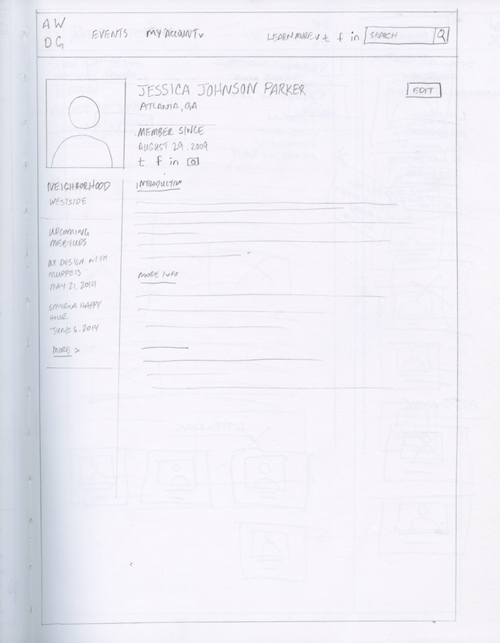 AW
DG
EVENTS MY ACCOUNT LEARN MORE t f in SEARCH
JESSICA JOHNSON PARKER
EDIT
ATLANTA, GA
MEMBER SINCE
AUGUST 29, 2009
t f in
NEIGHBORHOOD
WESTSIDE
UPCOMING
MEETUPS
UX DESIGN WITH
MUPPETS
MAY 21, 2014
SMYRNA HAPPY
HOUR
JUNE 6, 2014
MORE >
INTRODUCTION
MORE INFO